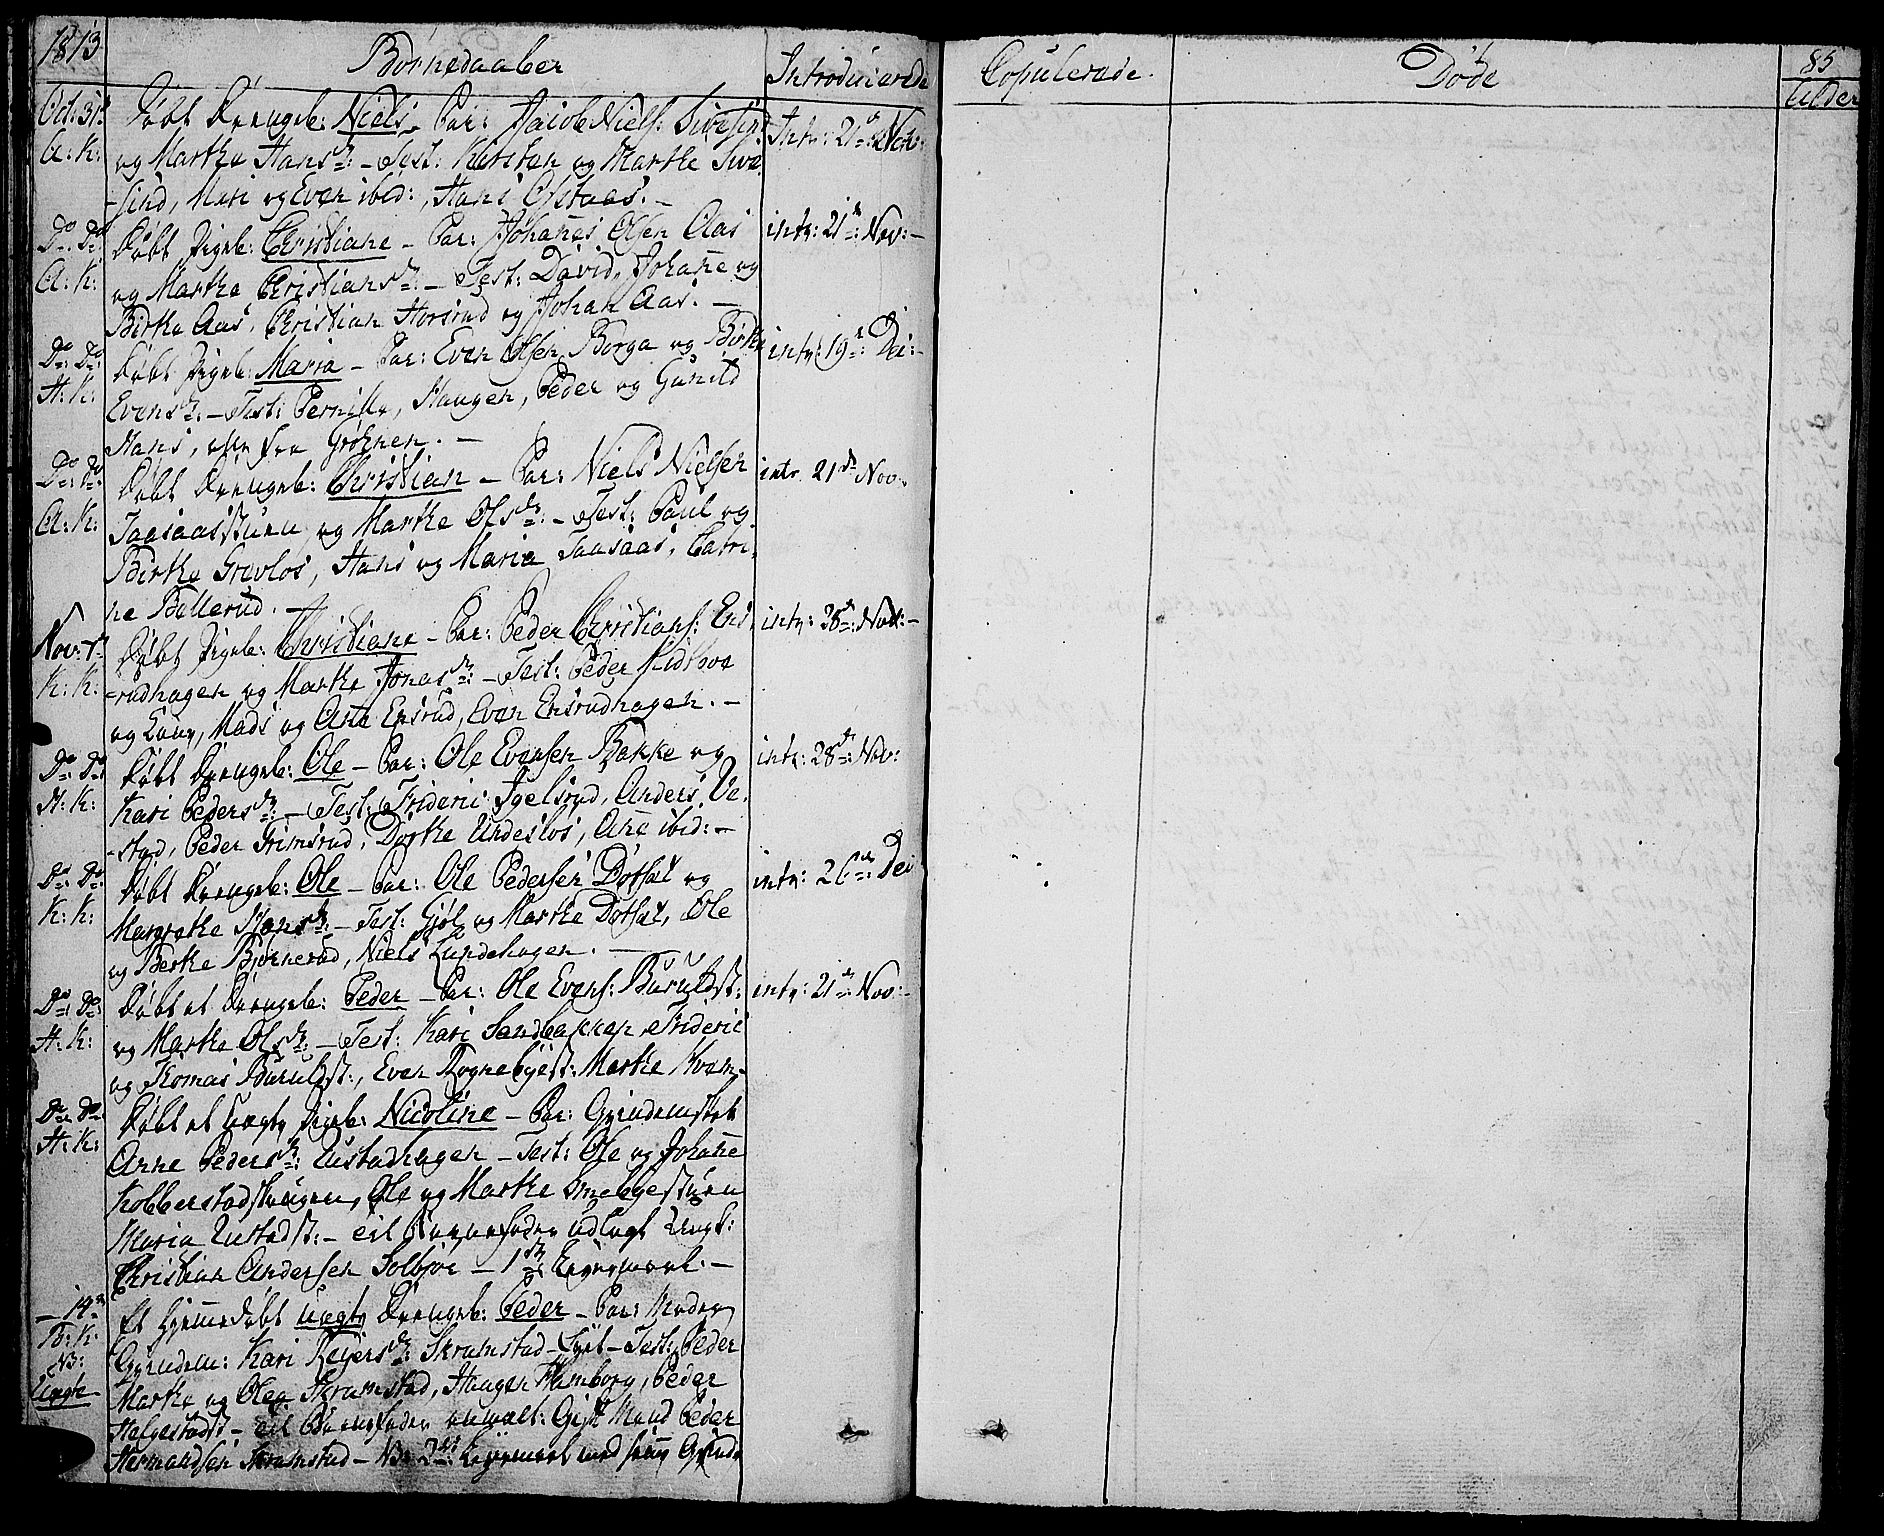 1813
Børnedaaber
Introducerede
Copulerede.
Døde
85
Alder
Oct: 31te
A: K:
Døbt Drengeb: Niels. Par: Jacob Niels: Sivesin
og Marthe Hansd: - Test: Karstan og Marthe Sive
-sind, Mari og Even ibid:, Hans Olstaas. -
Intr: 21de Nov:
Do Do
A: K:
Døbt Pigeb: Christiane - Par: Johanes Olsen Aas
og Marthe Christiansd: - Test: David, Johane og
Birthe Aas, Christian Horsrud og Johan Aas. -
intr: 21de Nov: -
Do Do
H: K:
Døbt Pigeb: Maria - Par: Even Olsen Borga og Birthe
Evensd: - Test: Pernille, Haugen, Peder og Gunild
Hans, alle fra Grønen. -
intr: 19de Dec: -
Do Do
A: K:
Døbt Drengeb: Christian - Par: Niels Nielsen
Taasaasstuen og Marthe Olsd: - Test: Paul og
Birthe Grevlos, Hans og Maria Taasaas, Catri-
ne Bollerud. -
intr. 21de Nov:
Nov: 7de
K: K:
Døbt Pigeb: Christiane - Par: Peder Christians: Ens
-rudhagen og Marthe Jonasd: - Test: Peder Kidthove
og Kone, Mads og Ane Ensrud, Even Ensrudhagen. -
intr: 28de Nov: -
Do Do
H: K:
Døbt Drengeb: Ole - Par: Ole Evensen Bakke og
Kari Pedersd: - Test: Frideric Igelsrud, Anders Ve-
-stad, Peder Grimsrud, Dorthe Undeslos, Ane ibid: -
intr: 28de Nov:
Do Do
K: K:
Døbt Drengeb: Ole - Par: Ole Pedersen Dotset og
Margrethe Hansd: - Test: Gjøl og Marthe Dotset, Ole
og Berthe Bjørnerud, Niels Lundehagen. -
intr: 26de Dec
Do Do
H: K:
Døbt et Drengeb: Peder - Par: Ole Evens: Buruldst:
og Marthe Olsd: - Test: Kari Sandbakken, Frideric
og Thomas Buruldst:, Even Rognebyest: Marthe Kvem-
intr: 21de Nov: -
Do Do
H: K:
Døbt et uægte Pigeb: Nicoline - Par: Qvindemsket
Anne Pedersd: Austadhagen - Test: Ole og Johane
Kobberstadshaugen, Ole og Marthe Smebyestuen
Maria Austadst: - til Barnefader udlagt Ungk:
Christian Andersen Solbjør - 1ste Leiermaal. -
- 14de
B: K:
NB:
Uægte
Et hjemmedøbt uægte Drengeb: Peder - Par: Moder
Qvindem: Kari Reiersd: Skramstad - Test: Peder
Marthe og Olea Skramstad, Haagen Framborg, Peder
Helgestadst - til Barnefader anmelt: Gift Mand Peder
Hermandsen Skramstad - No 2det Leiermaal med samme Qvinde